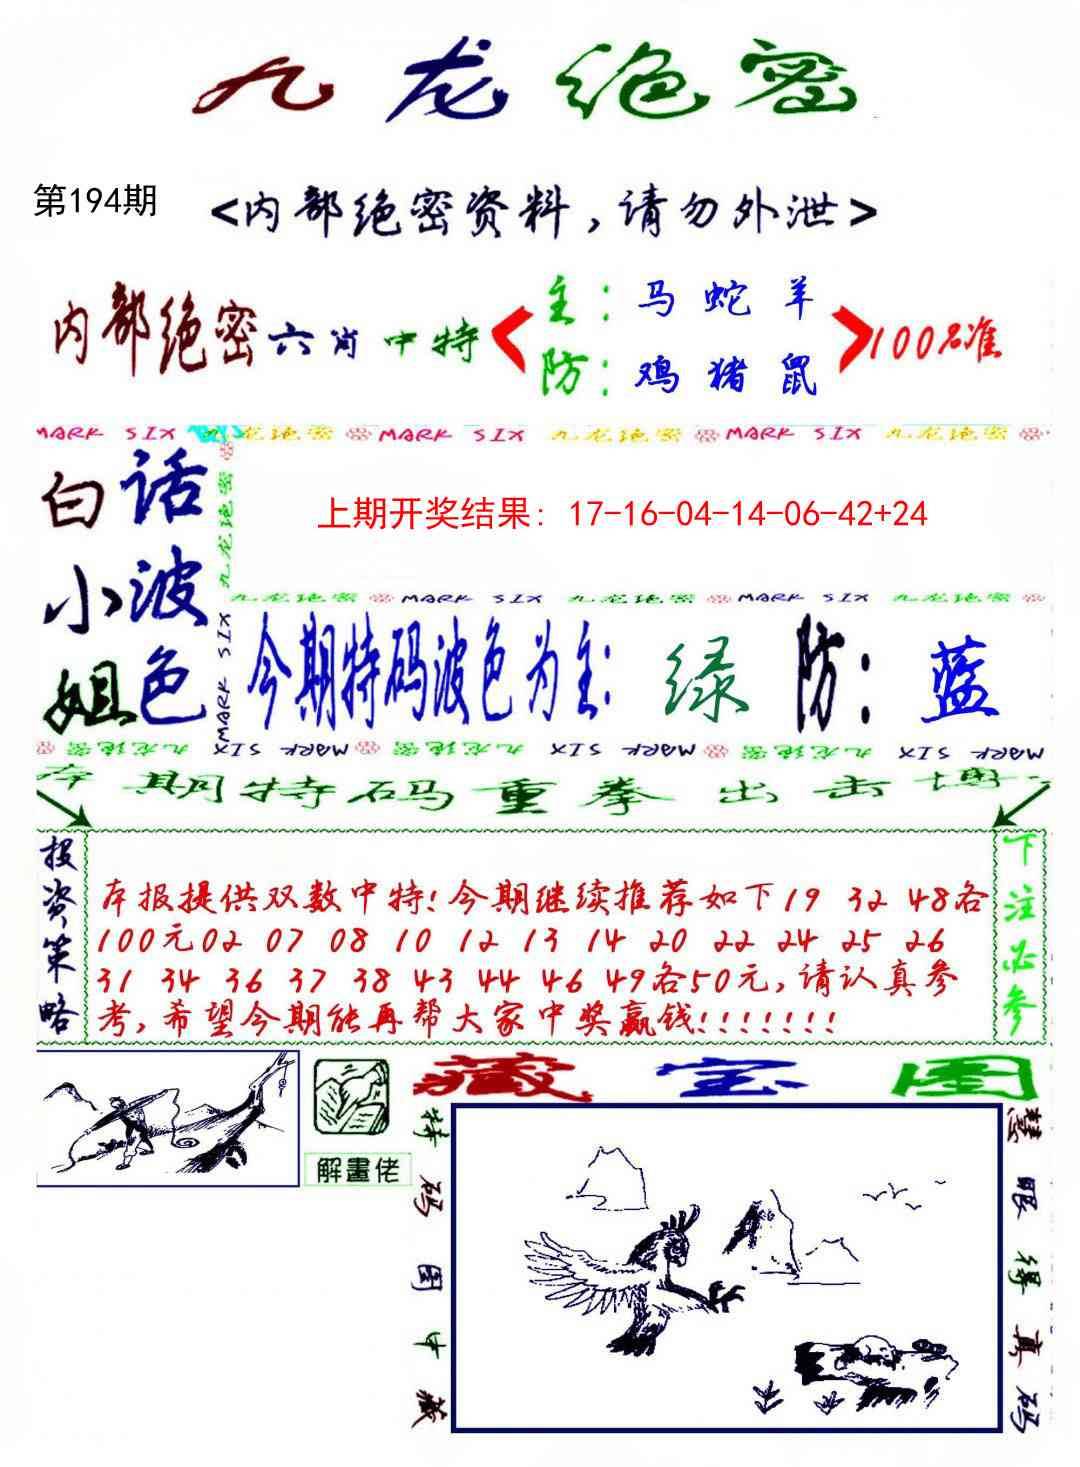 九龙绝密
第194期
<内部绝密资料,请勿外泄>
内部绝密六肖中特
主:马蛇羊
防:鸡猪鼠
100%准
MARK SIX 九龙绝密 MARK SIX 九龙绝密 MARK SIX 九龙绝密
白话小波姐色
九龙绝密
MARK SIX
上期开奖结果: 17-16-04-14-06-42+24
九龙绝密 MARK SIX 九龙绝密 MARK SIX 九龙绝密
今期特码波色为主: 绿 防: 蓝
九龙绝密 MARK SIX 九龙绝密 MARK SIX 九龙绝密 MARK SIX
本期特码重拳出击博
投资策略
本报提供双数中特!今期继续推荐如下19 32 48各
100元02 07 08 10 12 13 14 20 22 24 25 26
31 34 36 37 38 43 44 46 49各50元,请认真参
考,希望今期能再帮大家中奖赢钱!!!!!!!
下注必参
解畫佬
藏宝图
特码图中藏
慧眼得真码